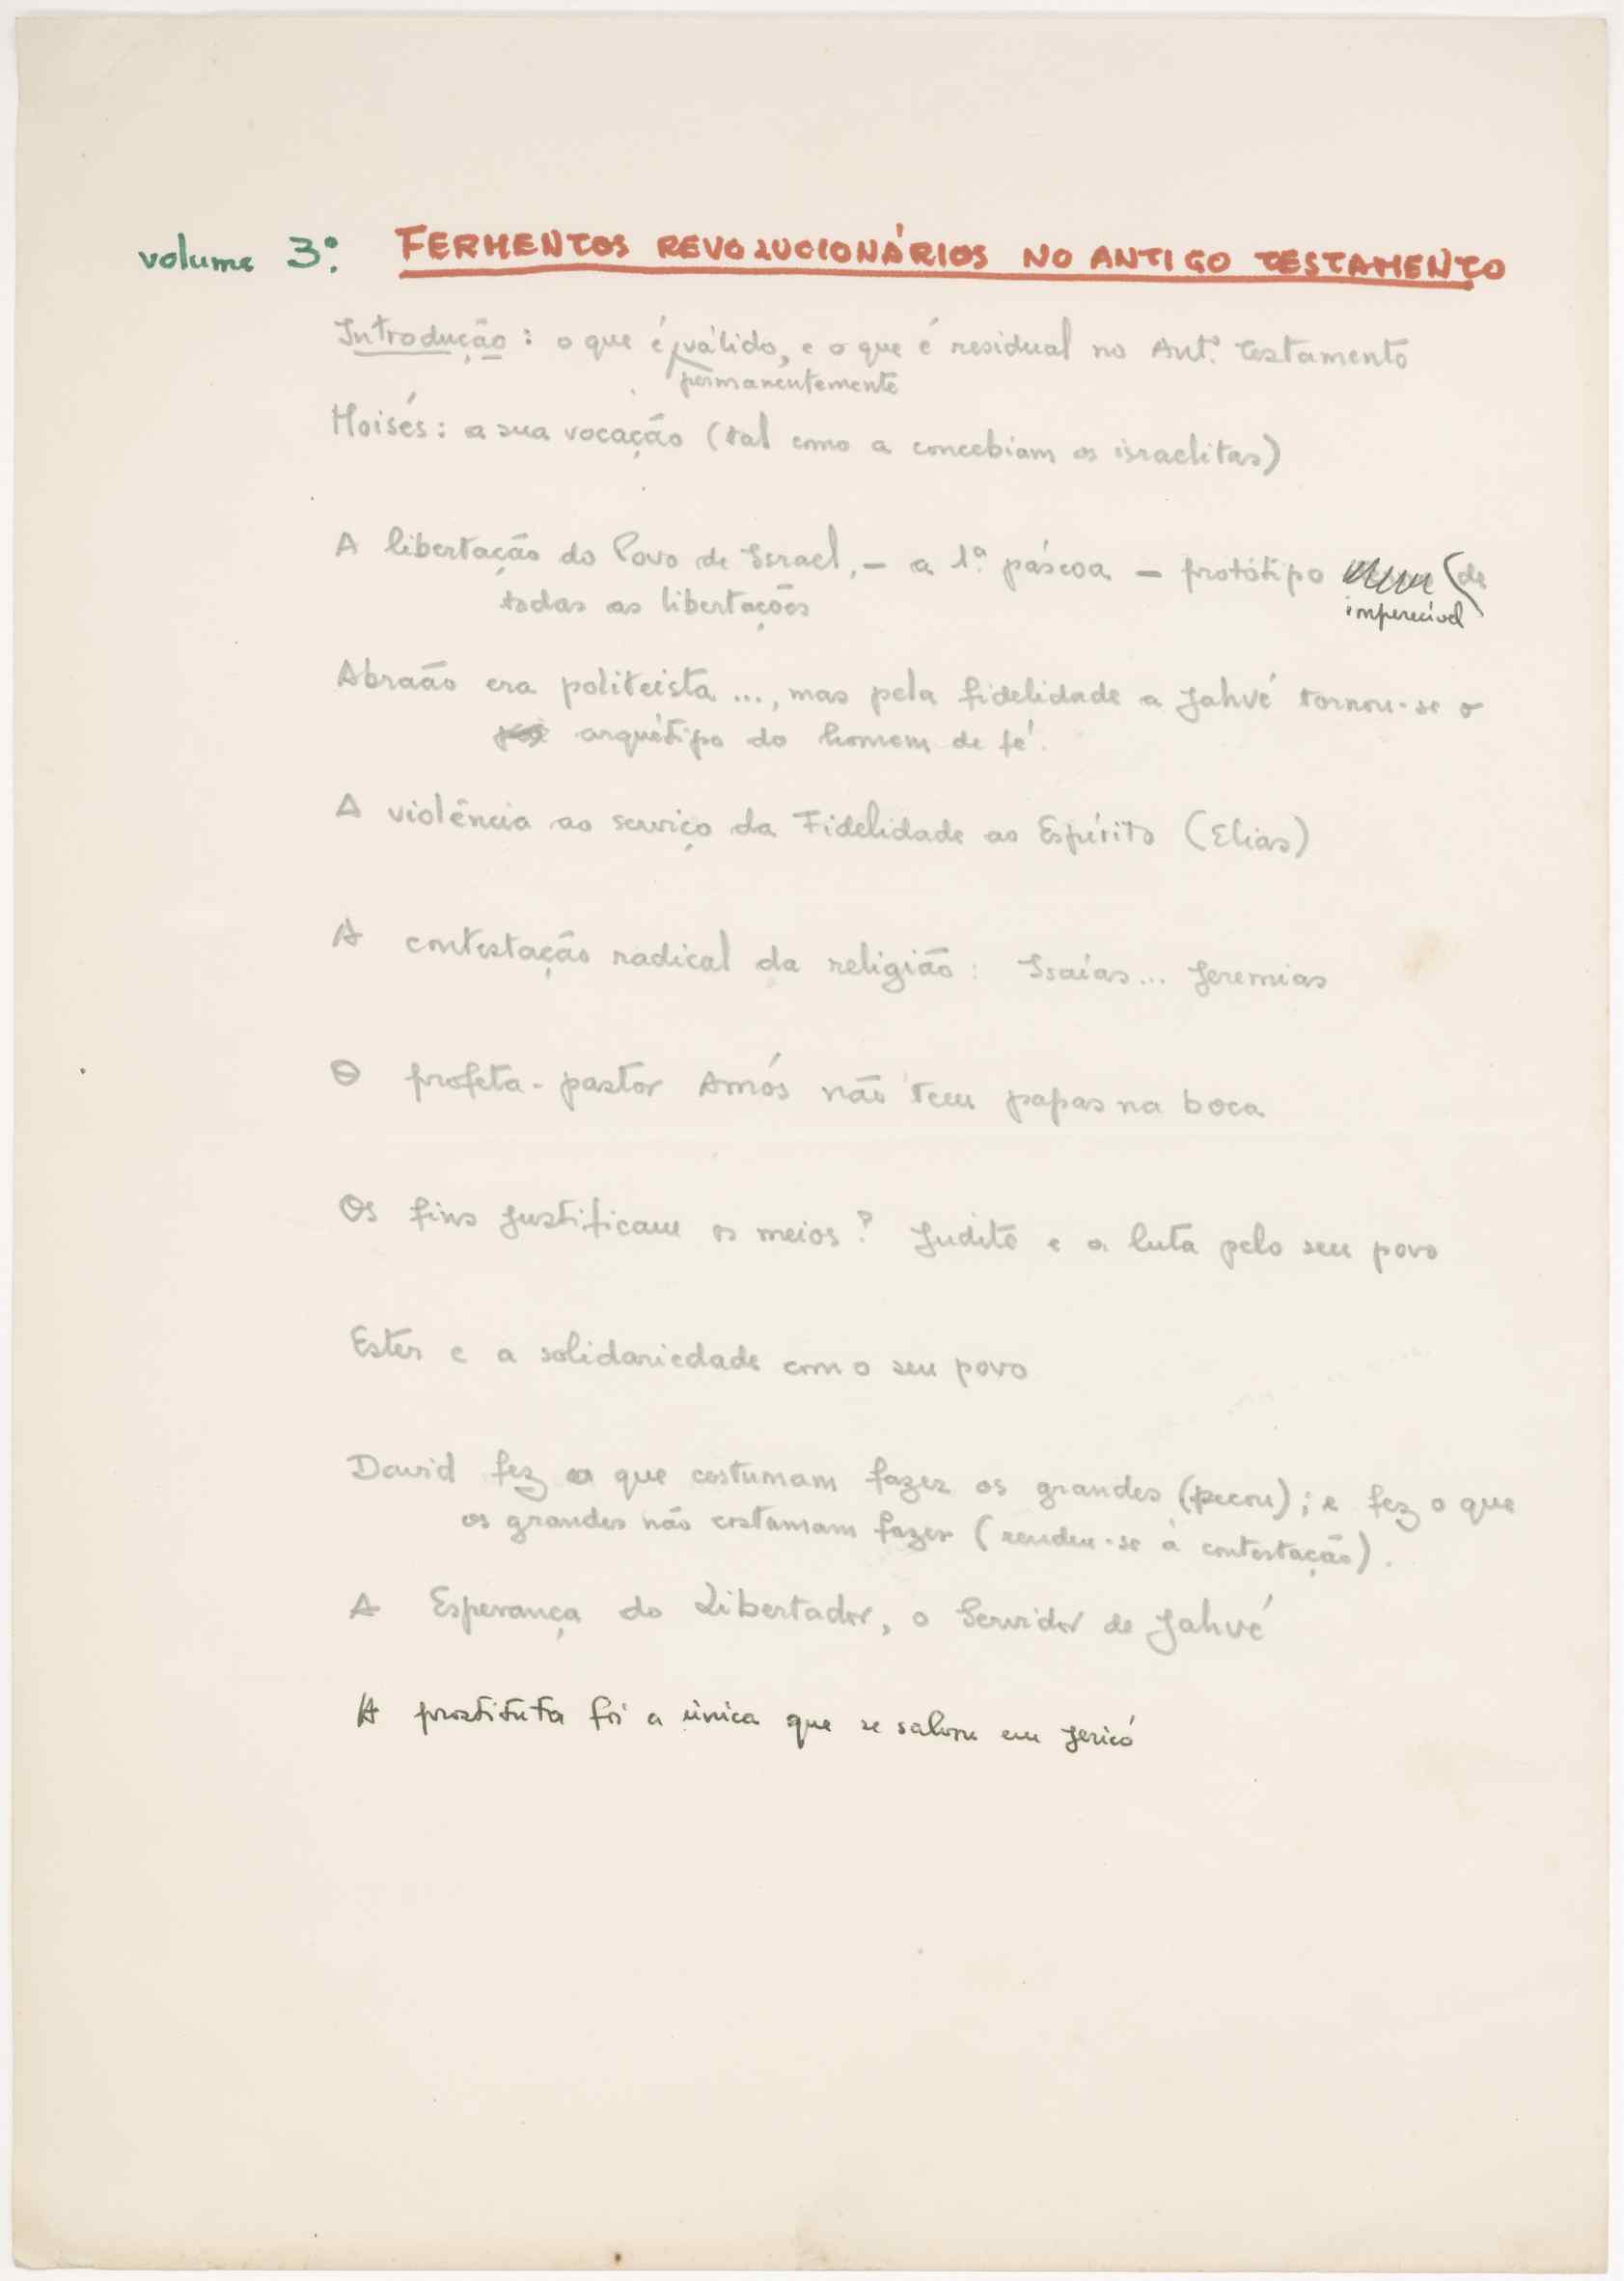 volume 3º: FERMENTOS REVOLUCIONÁRIOS NO ANTIGO TESTAMENTO
Introdução: o que é válido, e o que é residual no Antº Testamento
permanentemente
Moisés: a sua vocação (tal como a concebiam os israelitas)
A libertação do Povo de Israel, – a 1ª páscoa – protótipo de
imperecível
todas as libertações
Abraão era politeista ..., mas pela fidelidade a Jahvé tornou-se o
arquétipo do homem de fé.
A violência ao serviço da Fidelidade ao Espírito (Elias)
A contestação radical da religião: Isaías... Jeremias
O profeta-pastor Amós não tem papas na boca
Os fins justificam os meios? Judite e a luta pelo seu povo
Ester e a solidariedade com o seu povo
David fez o que costumam fazer os grandes (pecou); e fez o que
os grandes não costumam fazer (rendeu-se à contestação).
A Esperança do Libertador, o Servidor de Jahvé
A prostituta foi a única que se salvou em Jericó